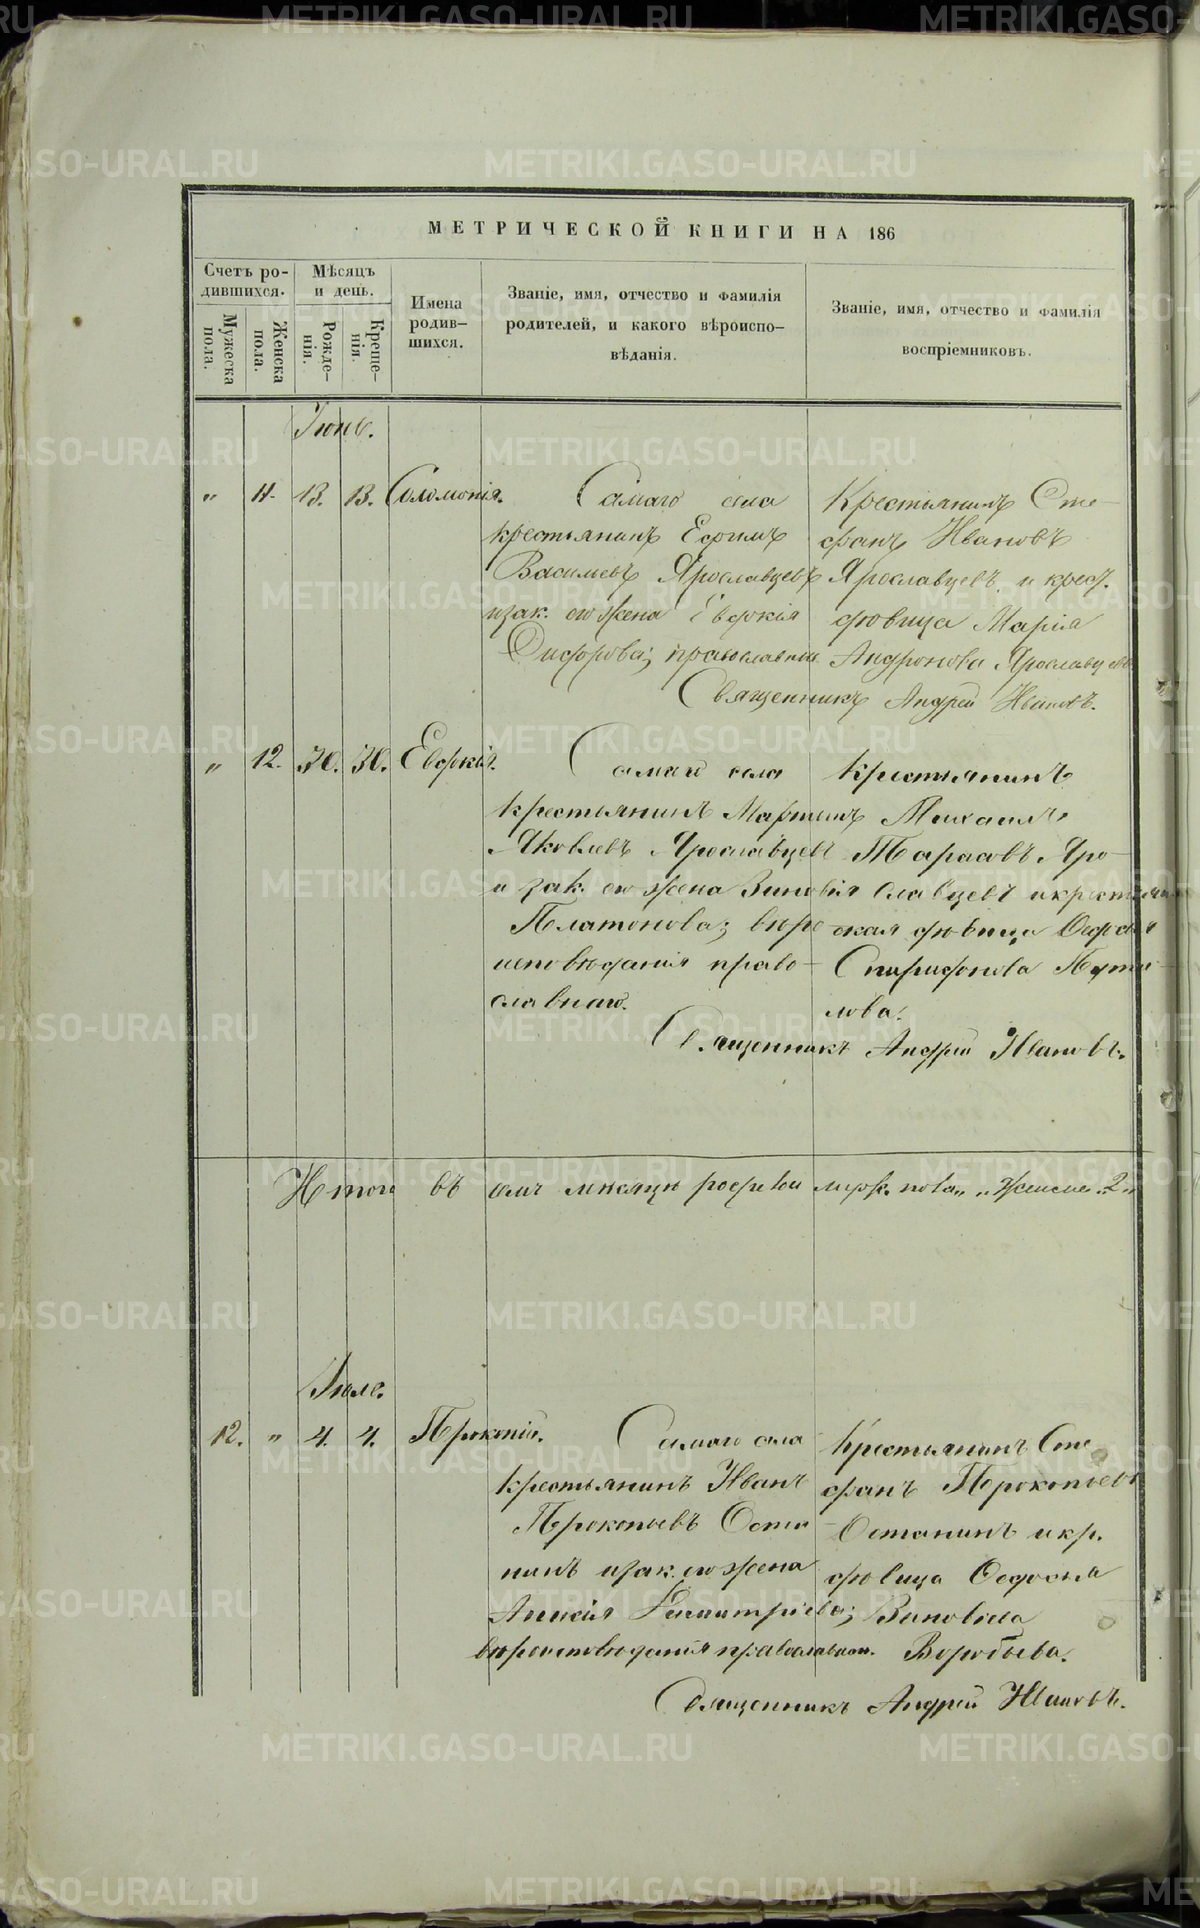 МЕТРИЧЕСКОЙ КНИГИ НА 186
Счетъ ро-
дившихся.
Мужеска
пола.
Женска
пола.
Мѣсяцъ
и день.
Рожде-
нія.
Креще-
нія.
Имена
родив-
шихся.
Званіе, имя, отчество и фамилія
родителей, и какого вѣроиспо-
вѣданія.
Званіе, имя, отчество и фамилія
воспріемниковъ.
Іюнь.
" 11. 13. 13. Соломонія.
Самаго села
крестьянинъ Ефимъ
Васильевъ Ярославцевъ
и зак. его жена Евдокія
православные
Крестьянинъ Сте
фанъ Ивановъ
Ярославцевъ и крес.
дѣвица Марія
Андронова Ярославцева
Священникъ Андрей Ивановъ.
" 12. 30. 30. Евдокія.
Самаго села
крестьянинъ Мартинъ
Яковлевъ Ярославцевъ
и зак. его жена Зиновія
Платонова; вѣро
исповѣданія право-
славнаго.
Крестьянинъ
Михаилъ
Тарасовъ Яро-
славцевъ и крестьян
ская дѣвица Федосья
Спиридонова Пути-
лова.
Священникъ Андрей Ивановъ.
Итого въ семъ мѣсяцѣ муж. пола " женска "2"
Іюль.
12. " 4. 4. Прокопій.
Самаго села
крестьянинъ Иванъ
Прокопьевъ Оста
нинъ и зак. его жена
Анисія Димитріева;
вѣроисповѣданія православнаго.
Крестьянинъ Сте
фанъ Прокопьевъ
Останинъ и кр.
дѣвица Федосья
Зиновіева
Воробьева.
Священникъ Андрей Ивановъ.
METRIKI.GASO-URAL.RU